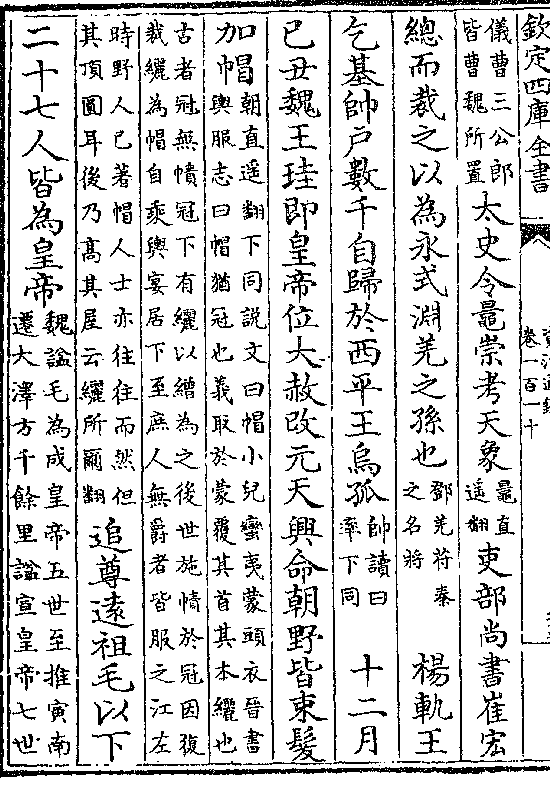 欽定四庫全書
卷一百一十
儀曹三公郎皆曹魏所置太史令鼂崇考天象鼂直遥翻吏部尚書崔宏
總而裁之以為永式淵羌之孫也鄧羌苻秦之名將楊軌王
乞基帥户數千自歸於西平王烏孤帥讀曰率下同十二月
已丑魏王珪即皇帝位大赦改元天興命朝野皆束髮
加帽朝直遥翻下同説文曰帽小兒蠻夷蒙頭衣晉書輿服志曰帽猶冠也義取於蒙覆其首其本纚也
古者冠無幘冠下有纚以繒為之後世施幘於冠因復裁纚為帽自乘輿宴居下至庶人無爵者皆服之江左
時野人已著帽人士亦往往而然但其頂圓耳後乃髙其屋云纚所爾翻追尊遠祖毛以下
二十七人皆為皇帝魏諡毛為成皇帝五世至推寅南遷大澤方千餘里諡宣皇帝七世